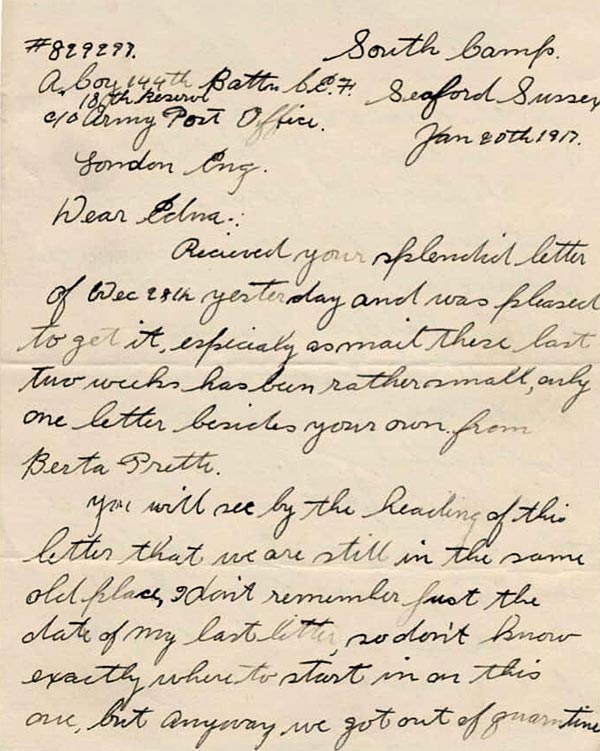 #829297.
South Camp.
A Coy 144th Battn C.E.F
Seaford Sussex
18th Reserve
c/o Army Post Office.
Jan 20th 1917.
London Eng.
Dear Edna:
Recieved your splendid letter
of Dec 28th yesterday and was pleased
to get it, especialy as mail these last
two weeks has been rather small, only
one letter besides your own from
Berta Pretty.
You will see by the heading of this
letter that we are still in the same
old place, I don't remember just the
date of my last letter, so don't know
exactly where to start in on this
one, but anyway we got out of quarntine